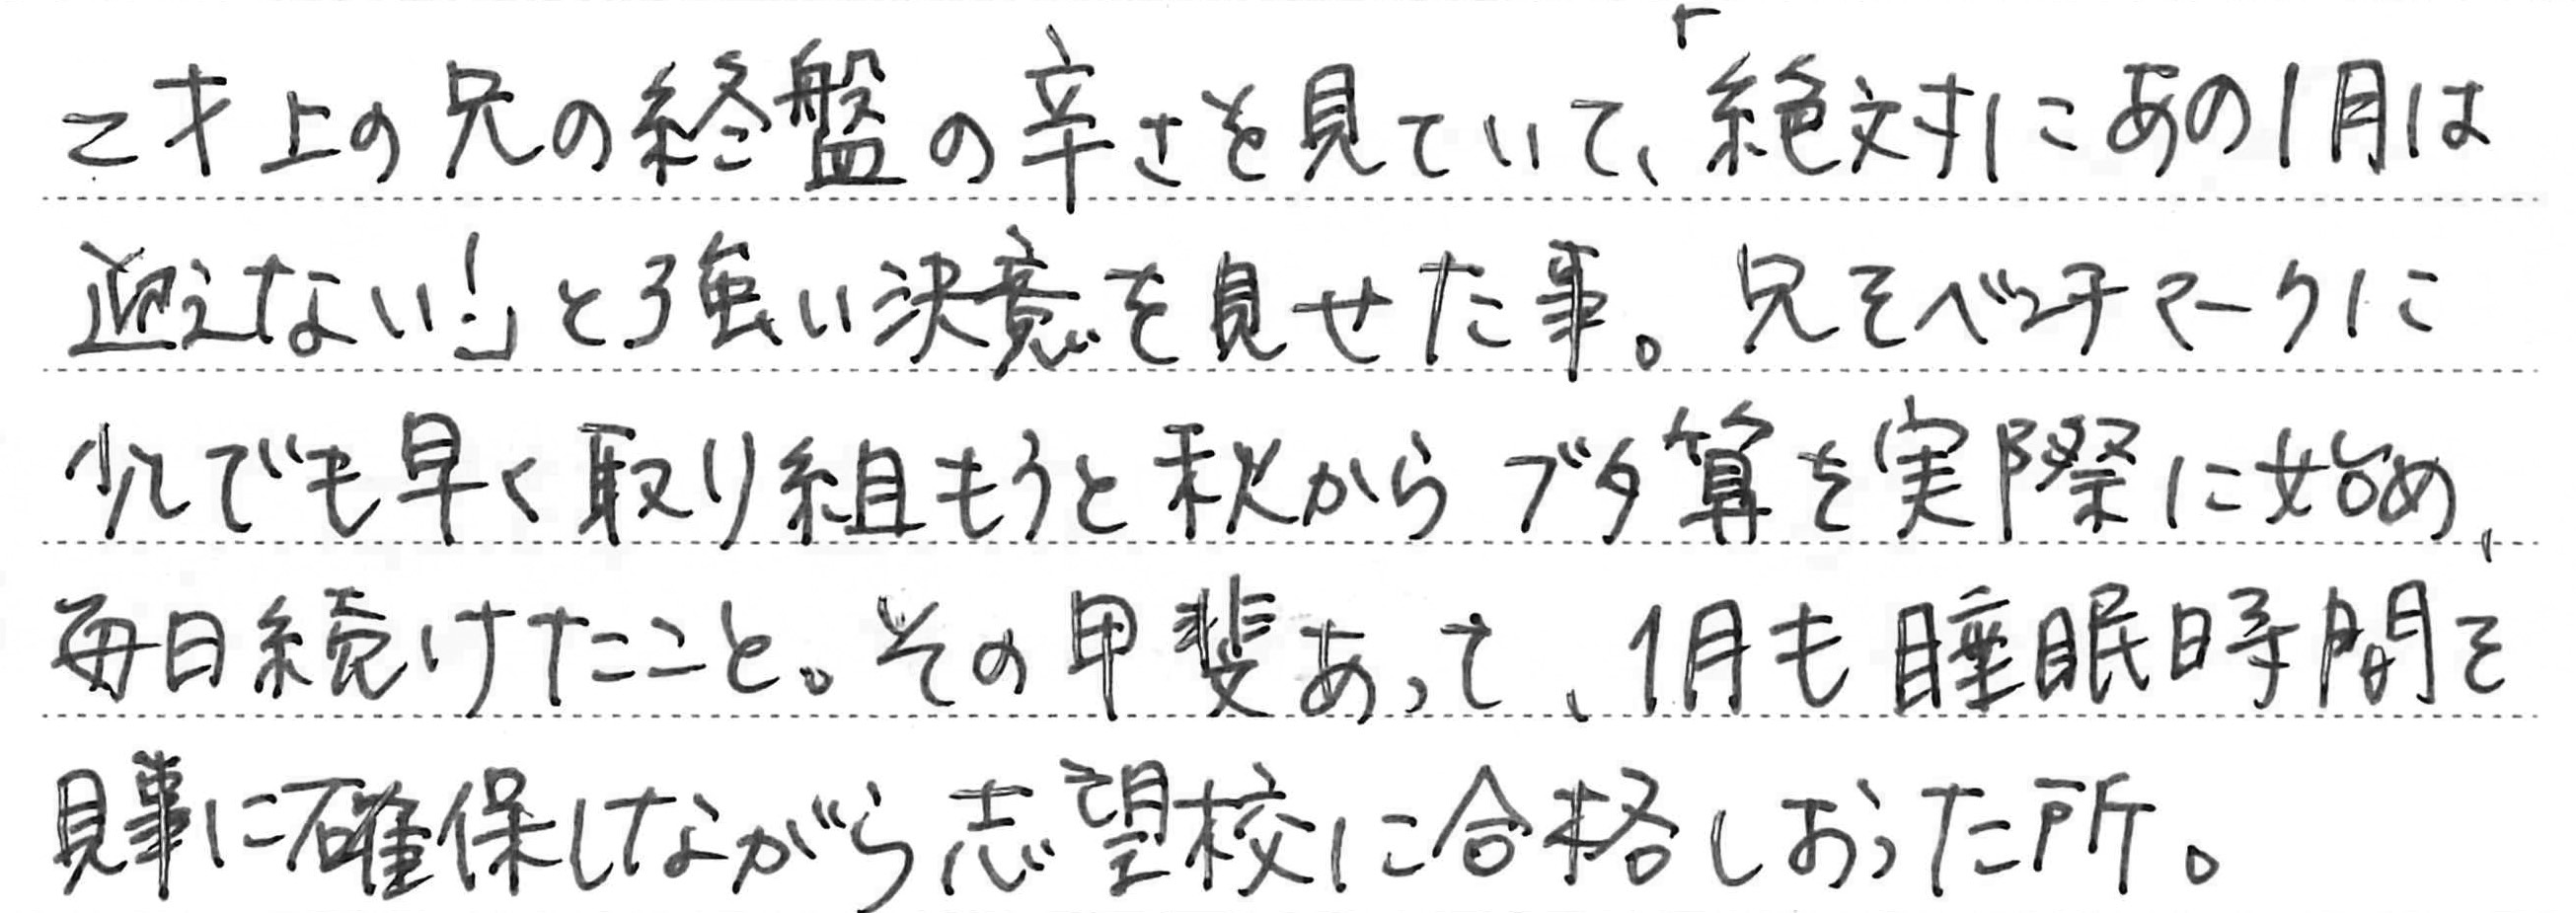 二才上の兄の終盤の辛さを見ていて、「絶対にあの1月は
迎えない!」と強い決意を見せた事。兄をベンチマークに
少しでも早く取り組もうと秋からブタ算を実際に始め、
毎日続けたこと。その甲斐あって、1月も睡眠時間を
見事に確保しながら志望校に合格しおった所。